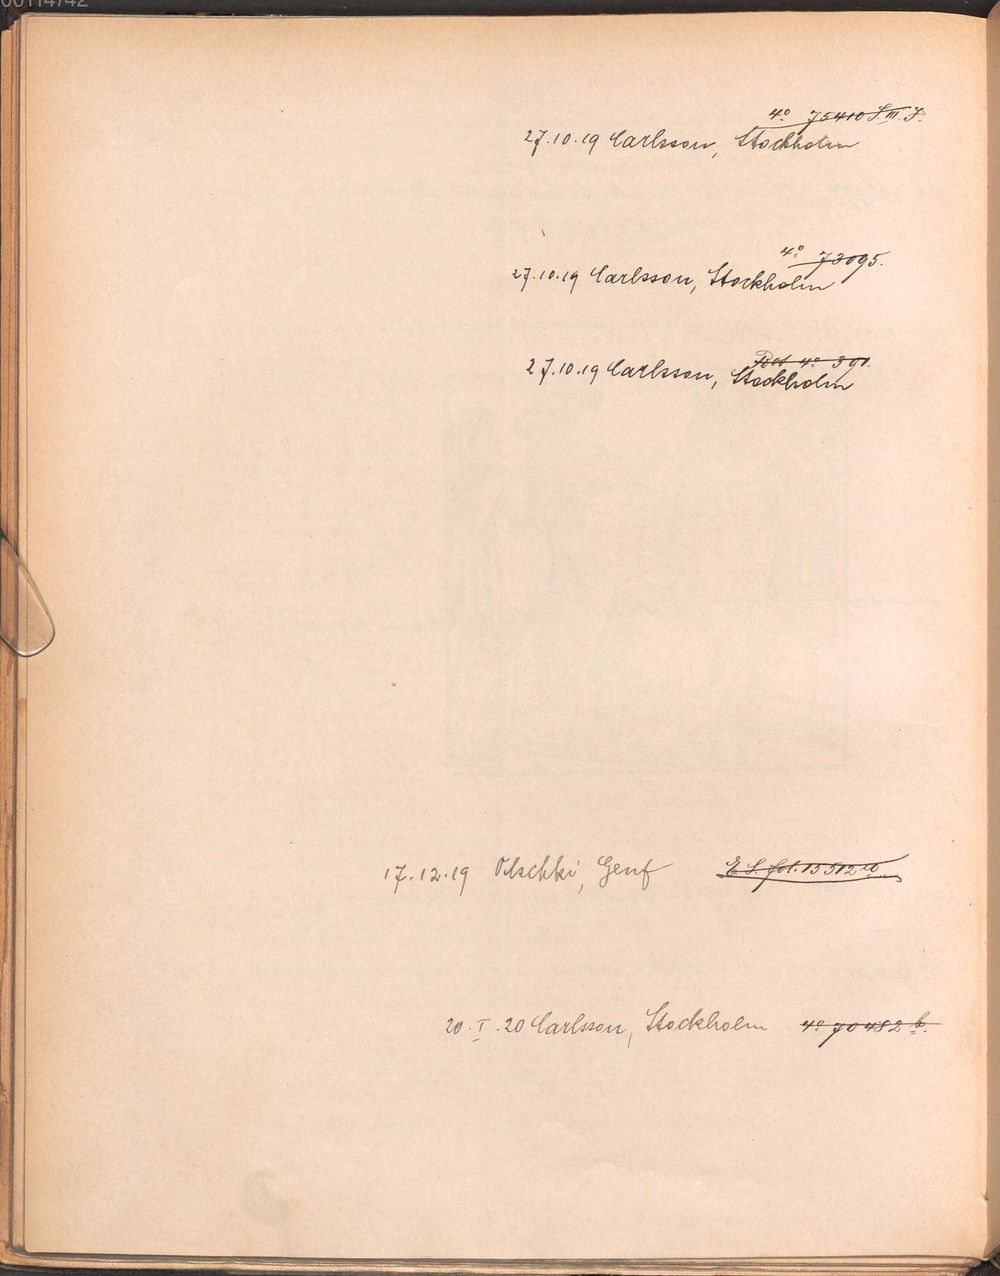 00114742
4° 75410
27.10.19 Carlsson, Stockholm
4° 73095.
27.10.19 Carlsson, Stockholm
4° 391.
27.10.19 Carlsson, Stockholm
17.12.19 Olschki, Genf E. S. fol. 13512
20.I.20 Carlsson, Stockholm 4° 70482 b.